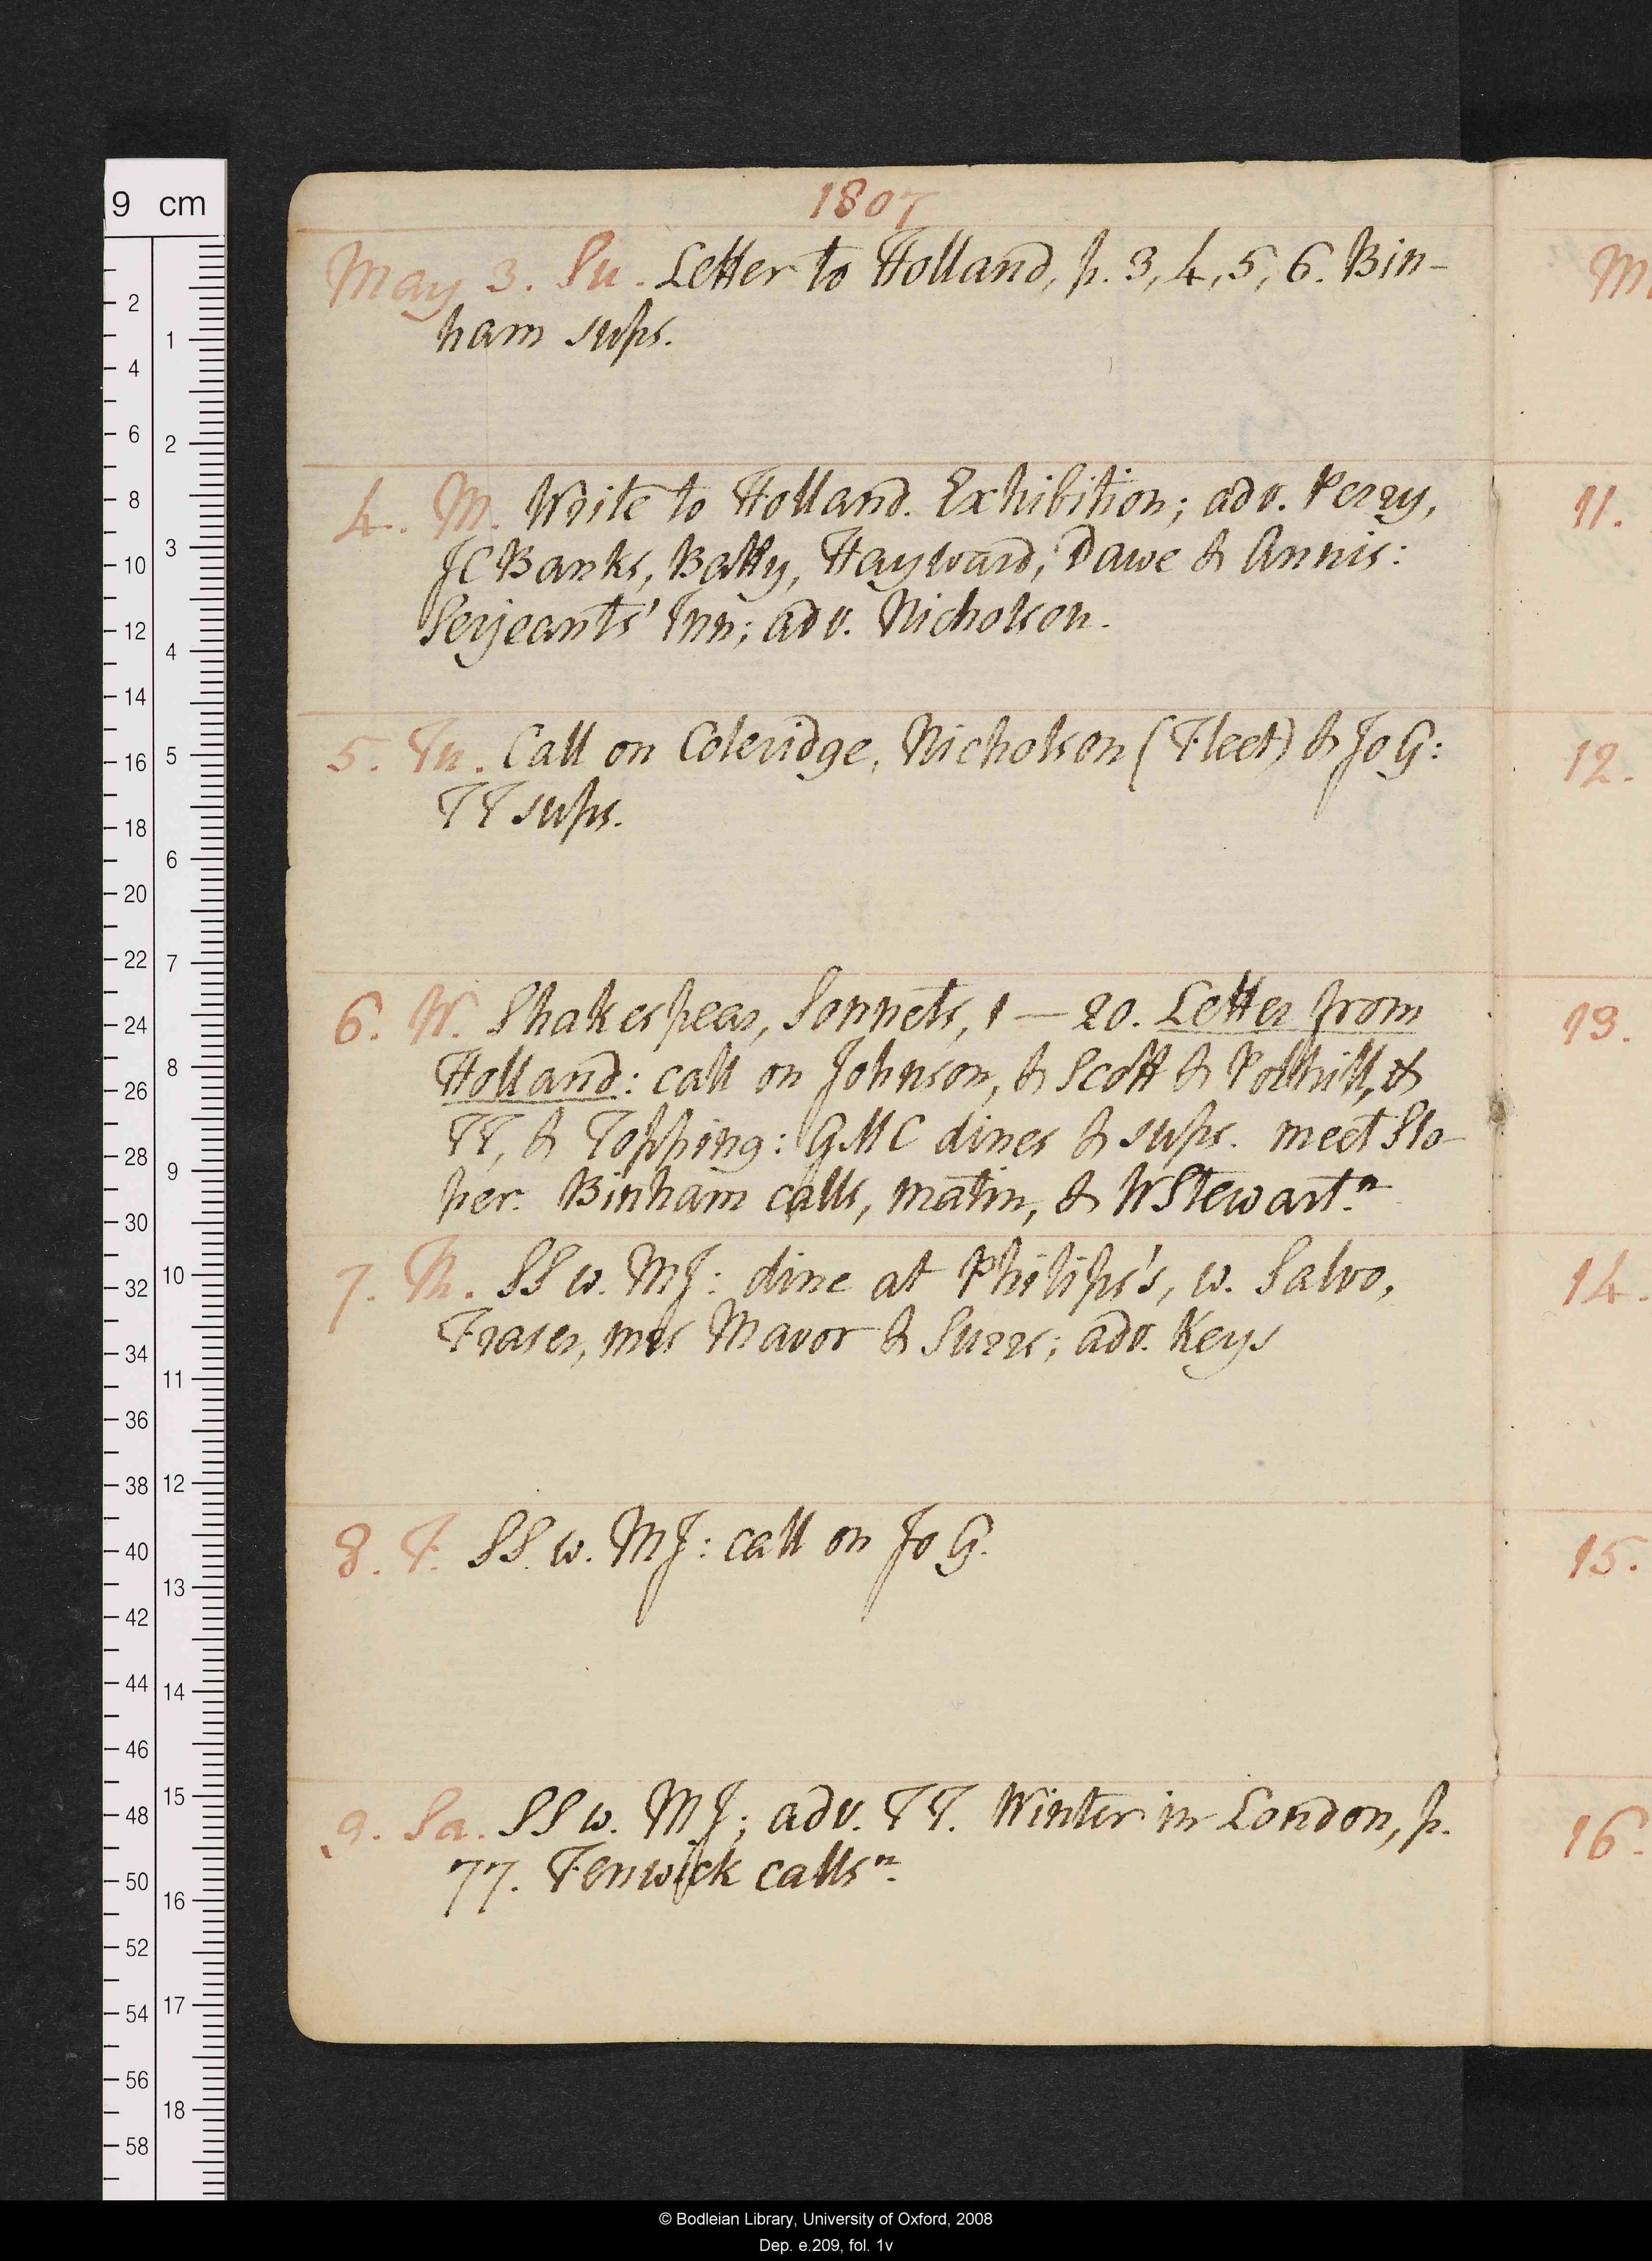 1807
May 3. Su. Letter to Holland, p. 3, 4, 5, 6. Bin-
ham sups.
4. M. Write to Holland. Exhibition; adv. Perry,
JC Banks, Batty, Hayward, Dawe & Annis:
Serjeants' Inn; adv. Nicholson.
5. Tu. Call on Coleridge, Nicholson (Fleet) & Jo G:
TT sups.
6. W. Shakespear, Sonnets, 1 — 20. Letter from
Holland: call on Johnson, & Scott & Polhill, &
TT, & Topping: GMC dines & sups. meet Slo-
per. Binham calls, matin, & W Stewart. n
7. Th. SS w. MJ: dine at Philips's, w. Salvo,
Fraser, mrs Mavor & Surrs; adv. Keys
8. F. SS. w. MJ: call on Jo G.
9. Sa. SS w. MJ; adv. TT. Winter in London, p.
77. Fenwick calls n.
M
11.
12.
13.
14.
15.
16.
9 cm
2
4
6
8
10
12
14
16
18
20
22
24
26
28
30
32
34
36
38
40
42
44
46
48
50
52
54
56
58
1
2
3
4
5
6
7
8
9
10
11
12
13
14
15
16
17
18
© Bodleian Library, University of Oxford, 2008
Dep. e.209, fol. 1v